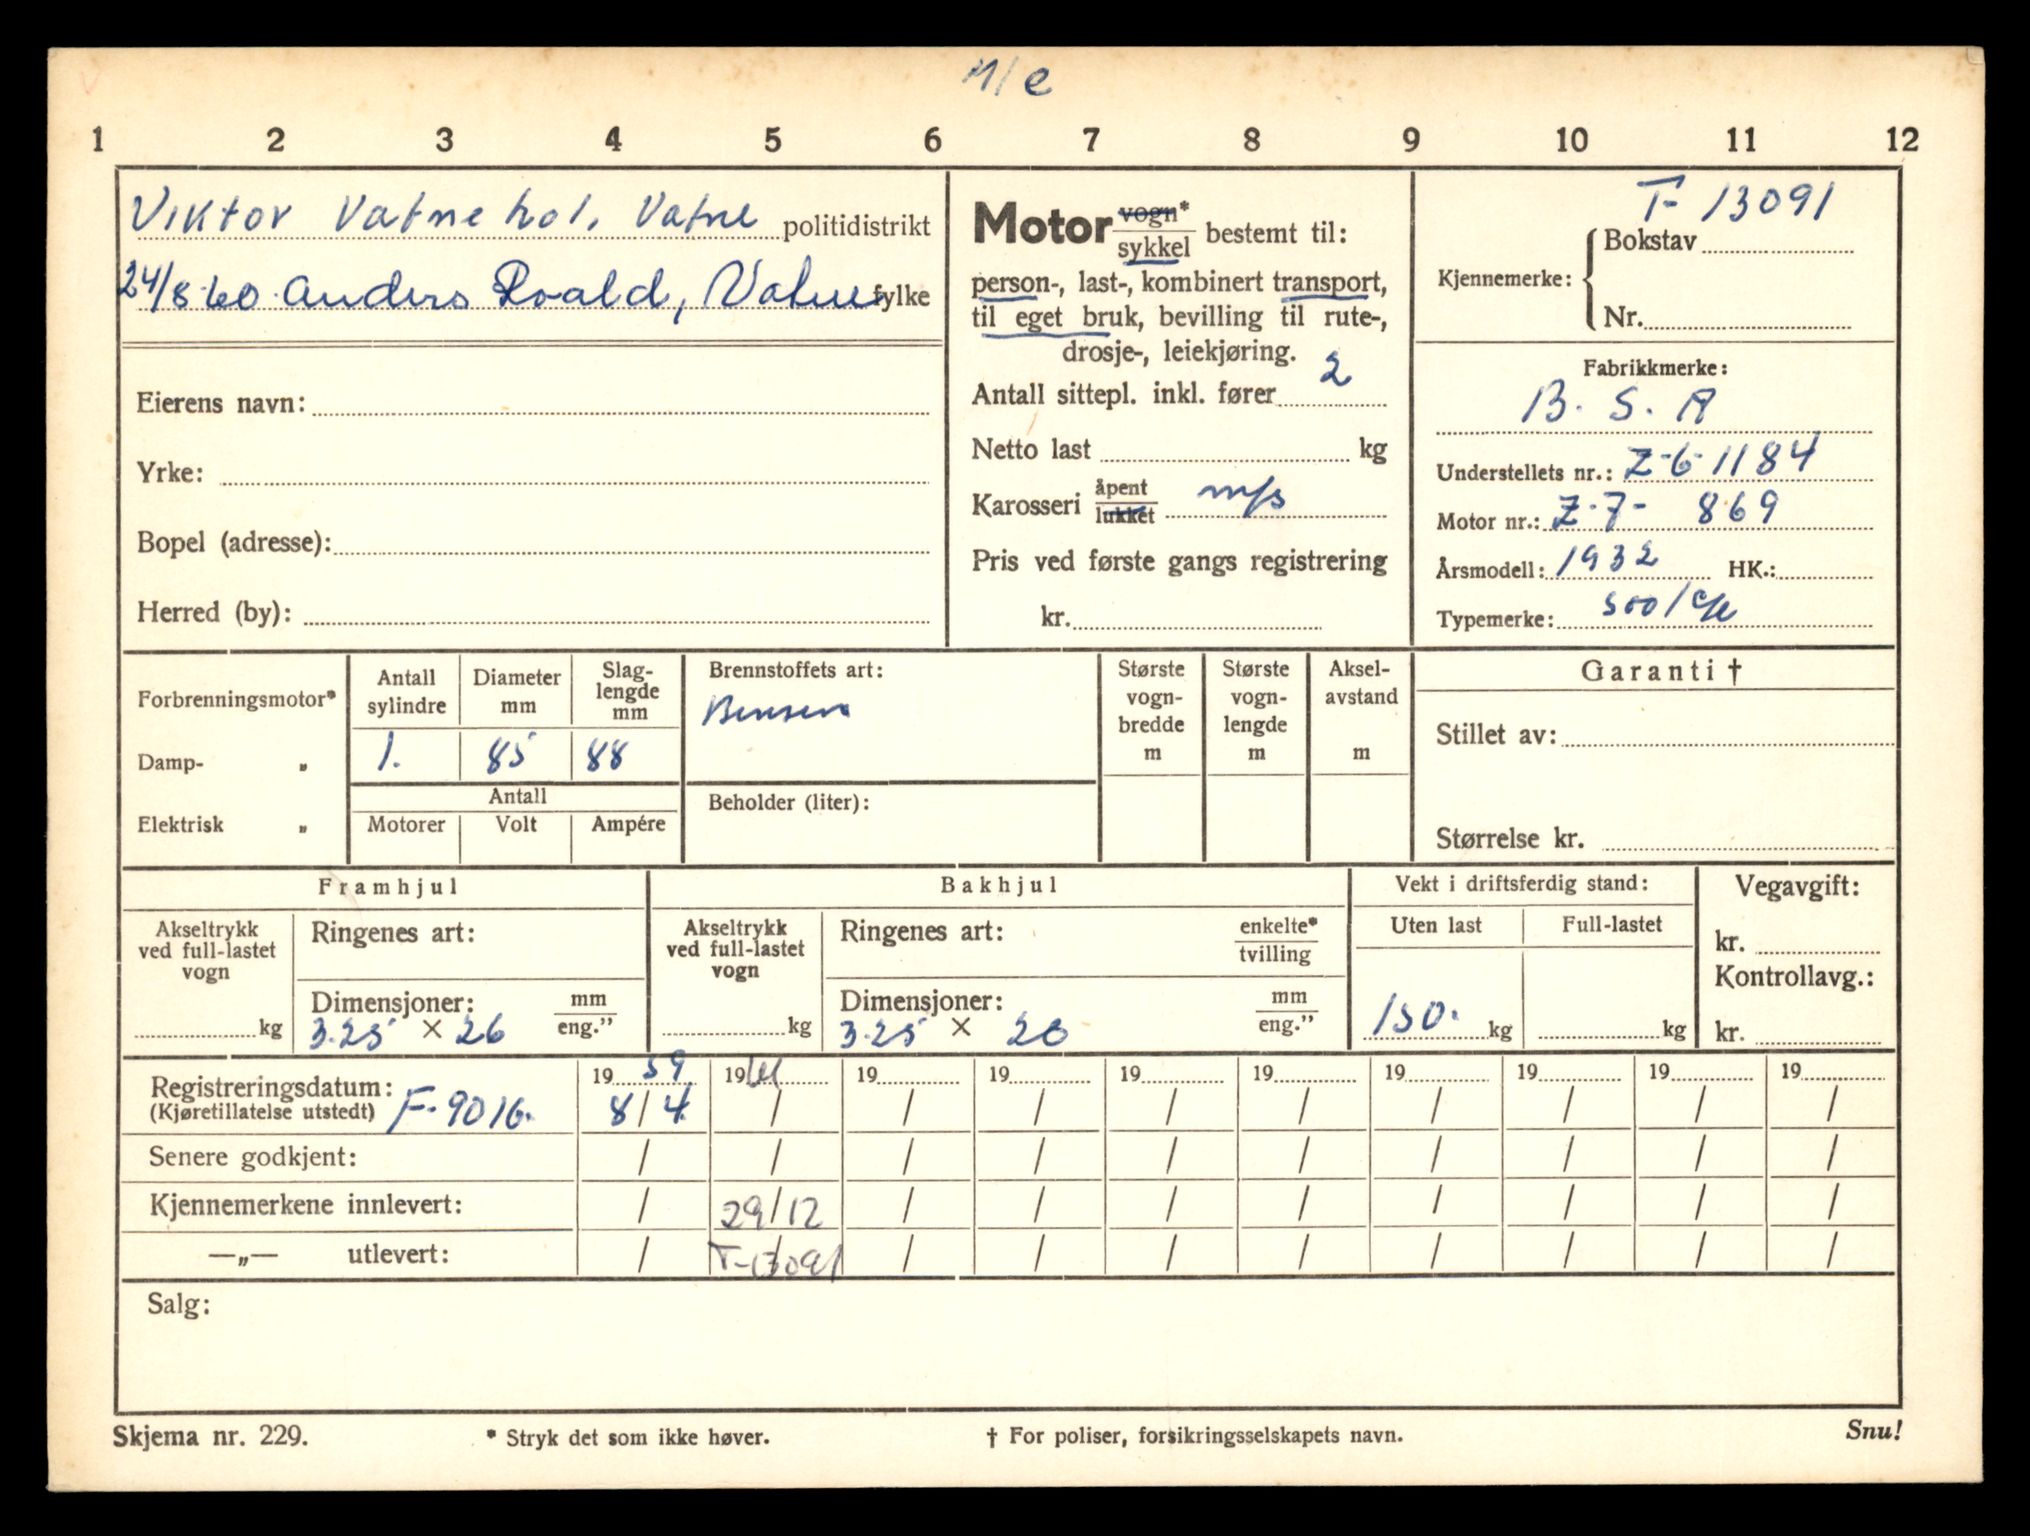 M/c
1 2 3 4 5 6 7 8 9 10 11 12
Viktor Vatnehol, Vatne politidistrikt
24/8-60. Anders Roald, Vatne fylke
Eierens navn:
Yrke:
Bopel (adresse):
Herred (by):
Motor vogn* / sykkel bestemt til:
person-, last-, kombinert transport,
til eget bruk, bevilling til rute-,
drosje-, leiekjøring.
Antall sittepl. inkl. fører 2
Netto last kg
Karosseri åpent / lukket m/s
Pris ved første gangs registrering
kr.
T-13091
Kjennemerke: Bokstav
Nr.
Fabrikkmerke:
B. S. A
Understellets nr.: Z-6-1184
Motor nr.: Z-7- 869
Årsmodell: 1932 HK.:
Typemerke: 500/
Forbrenningsmotor*
Damp- „
Elektrisk „
Antall sylindre
Diameter mm
Slag-lengde mm
1. 85 88
Antall
Motorer Volt Ampére
Brennstoffets art:
Bensin
Beholder (liter):
Største vogn-bredde m
Største vogn-lengde m
Aksel-avstand m
Garanti †
Stillet av:
Størrelse kr.
Framhjul
Akseltrykk ved full-lastet vogn
kg
Ringenes art:
Dimensjoner: mm / eng.”
3.25 × 26
Bakhjul
Akseltrykk ved full-lastet vogn
kg
Ringenes art: enkelte* / tvilling
Dimensjoner: mm / eng.”
3.25 × 26
Vekt i driftsferdig stand:
Uten last Full-lastet
150. kg kg
Vegavgift:
kr.
Kontrollavg.:
kr.
Registreringsdatum: 19 59 19 61 19 19 19 19 19 19 19 19
(Kjøretillatelse utstedt) F-9016. 8/4 / / / / / / / / /
Senere godkjent: / / / / / / / / / /
Kjennemerkene innlevert: / 29/12 / / / / / / / /
—„— utlevert: / T-13091 / / / / / / / /
Salg:
Skjema nr. 229. * Stryk det som ikke høver. † For poliser, forsikringsselskapets navn. Snu!